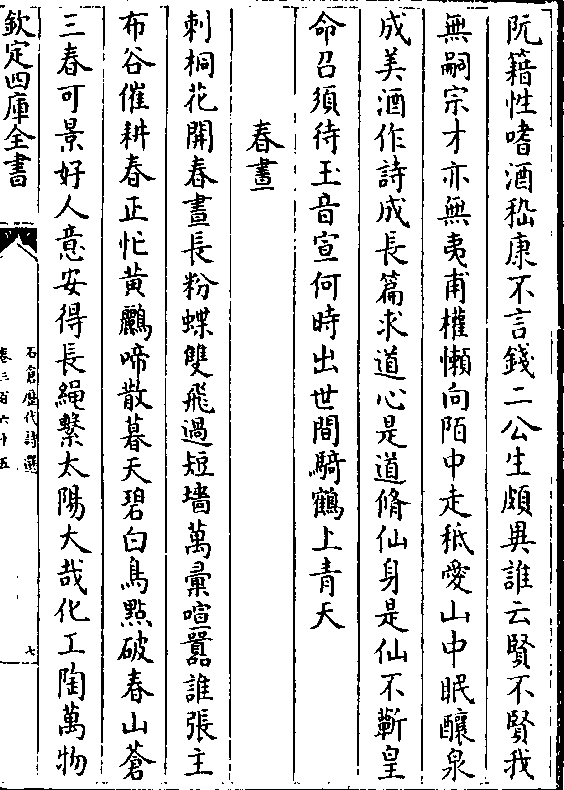 阮籍性嗜酒嵇康不言錢二公生頗異誰云賢不賢我
無嗣宗才亦無夷甫權懶向陌中走秪愛山中眠釀泉
成美酒作詩成長篇求道心是道脩仙身是仙不蘄皇
命召須待玉音宣何時出世間騎鶴上青天
春晝
刺桐花開春晝長粉蝶雙飛過短墻萬彙喧囂誰張主
布谷催耕春正忙黃鸝啼散暮天碧白鳥點破春山蒼
三春可景好人意安得長繩繫太陽大哉化工陶萬物
欽定四庫全書
石倉歷代詩選
卷三百六十五
七